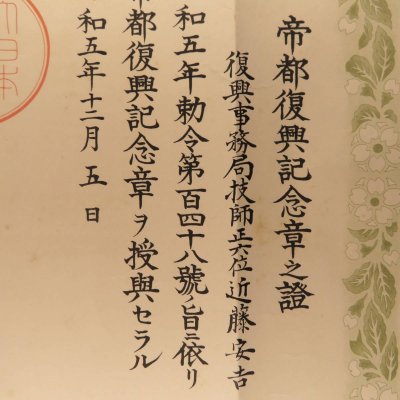 帝都復興記念章之證
復興事務局技師正六位近藤安吉
和五年勅令第百四十八號ノ旨ニ依リ
帝都復興記念章ヲ授與セラル
和五年十二月五日
日本